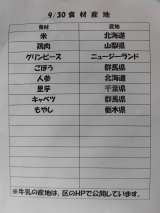 9/30食材産地
食材 産地
米 北海道
鶏肉 山梨県
グリンピース ニュージーランド
ごぼう 群馬県
人参 北海道
里芋 千葉県
キャベツ 群馬県
もやし 栃木県
※牛乳の産地は、区のHPで公開しています。